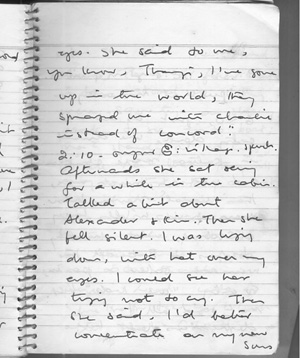 eyes. She said to me,
you know, Thangi, I've gone
up in the world, they
sprayed me with charlie
instead of concord."
2.10.
Afterwards she sat
for a while in the cabin.
Talked a bit about
Alexander & Kim. Then she
fell silent. I was lying
down, with hat over my
eyes. I could see her
trying not to cry. Then
she said, I'd better
concentrate on my new